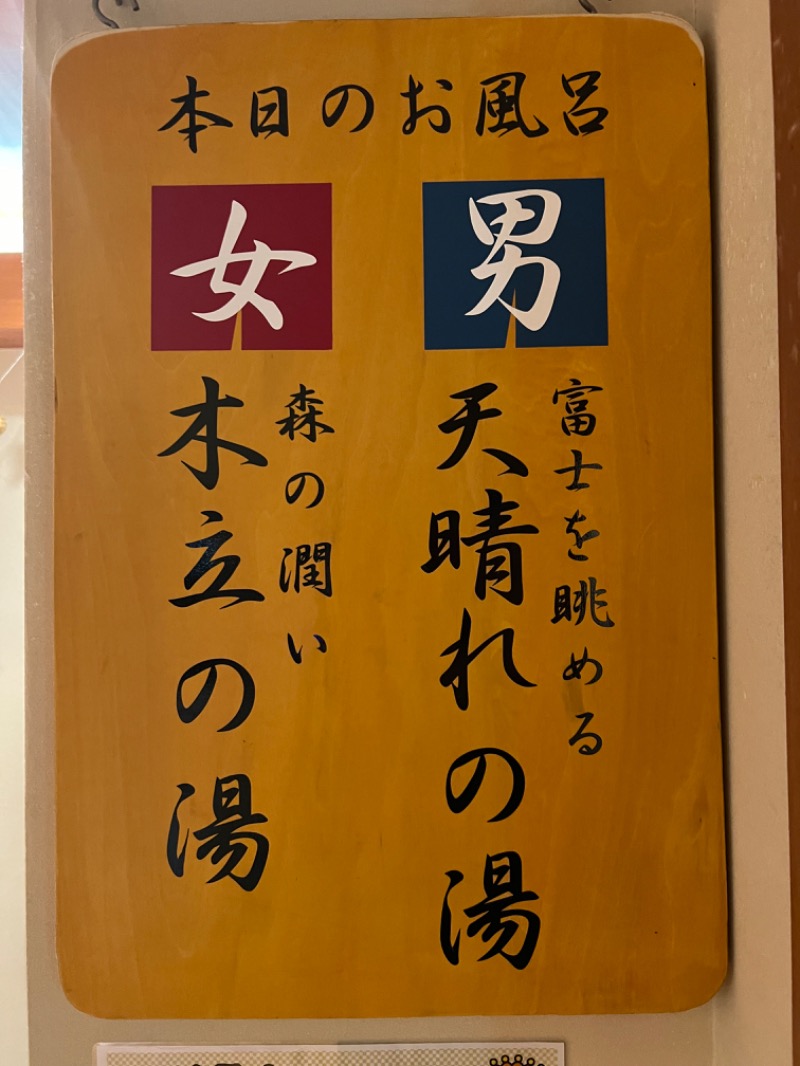 本日のお風呂
男
富士を眺める
天晴れの湯
女
森の潤い
木立の湯